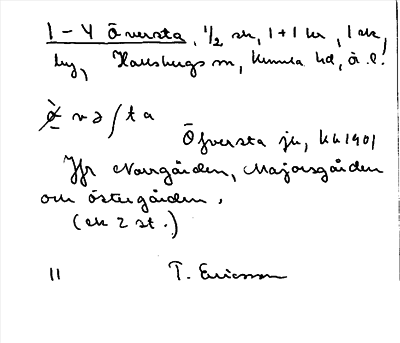 1 – 4 Översta, 1/2 sk, 1 + 1 kr, 1 ek,
by, Hallsbergs sn, Kumla hd, Ör. l.
övə/ta
Öfversta ju, kk 1901
Jfr Norrgården, Majorsgården
och Östergården.
(ek 2 st.)
" T. Ericsson